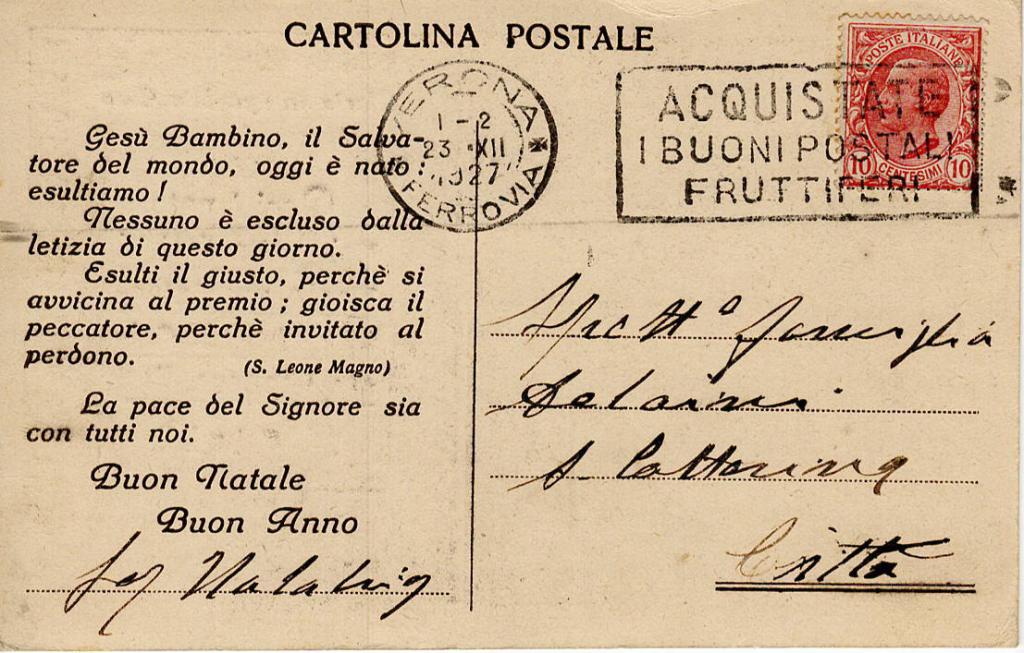 CARTOLINA POSTALE
VERONA
1-2
23 XII
1927
FERROVIA
ACQUISTATE
I BUONI POSTALI
FRUTTIFERI
POSTE ITALIANE
10 CENTESIMI 10
Gesù Bambino, il Salva-
tore del mondo, oggi è nato:
esultiamo!
Nessuno è escluso dalla
letizia di questo giorno.
Esulti il giusto, perchè si
avvicina al premio; gioisca il
peccatore, perchè invitato al
perdono.
(S. Leone Magno)
La pace del Signore sia
con tutti noi.
Buon Natale
Buon Anno
famiglia
S. Catterina
Città